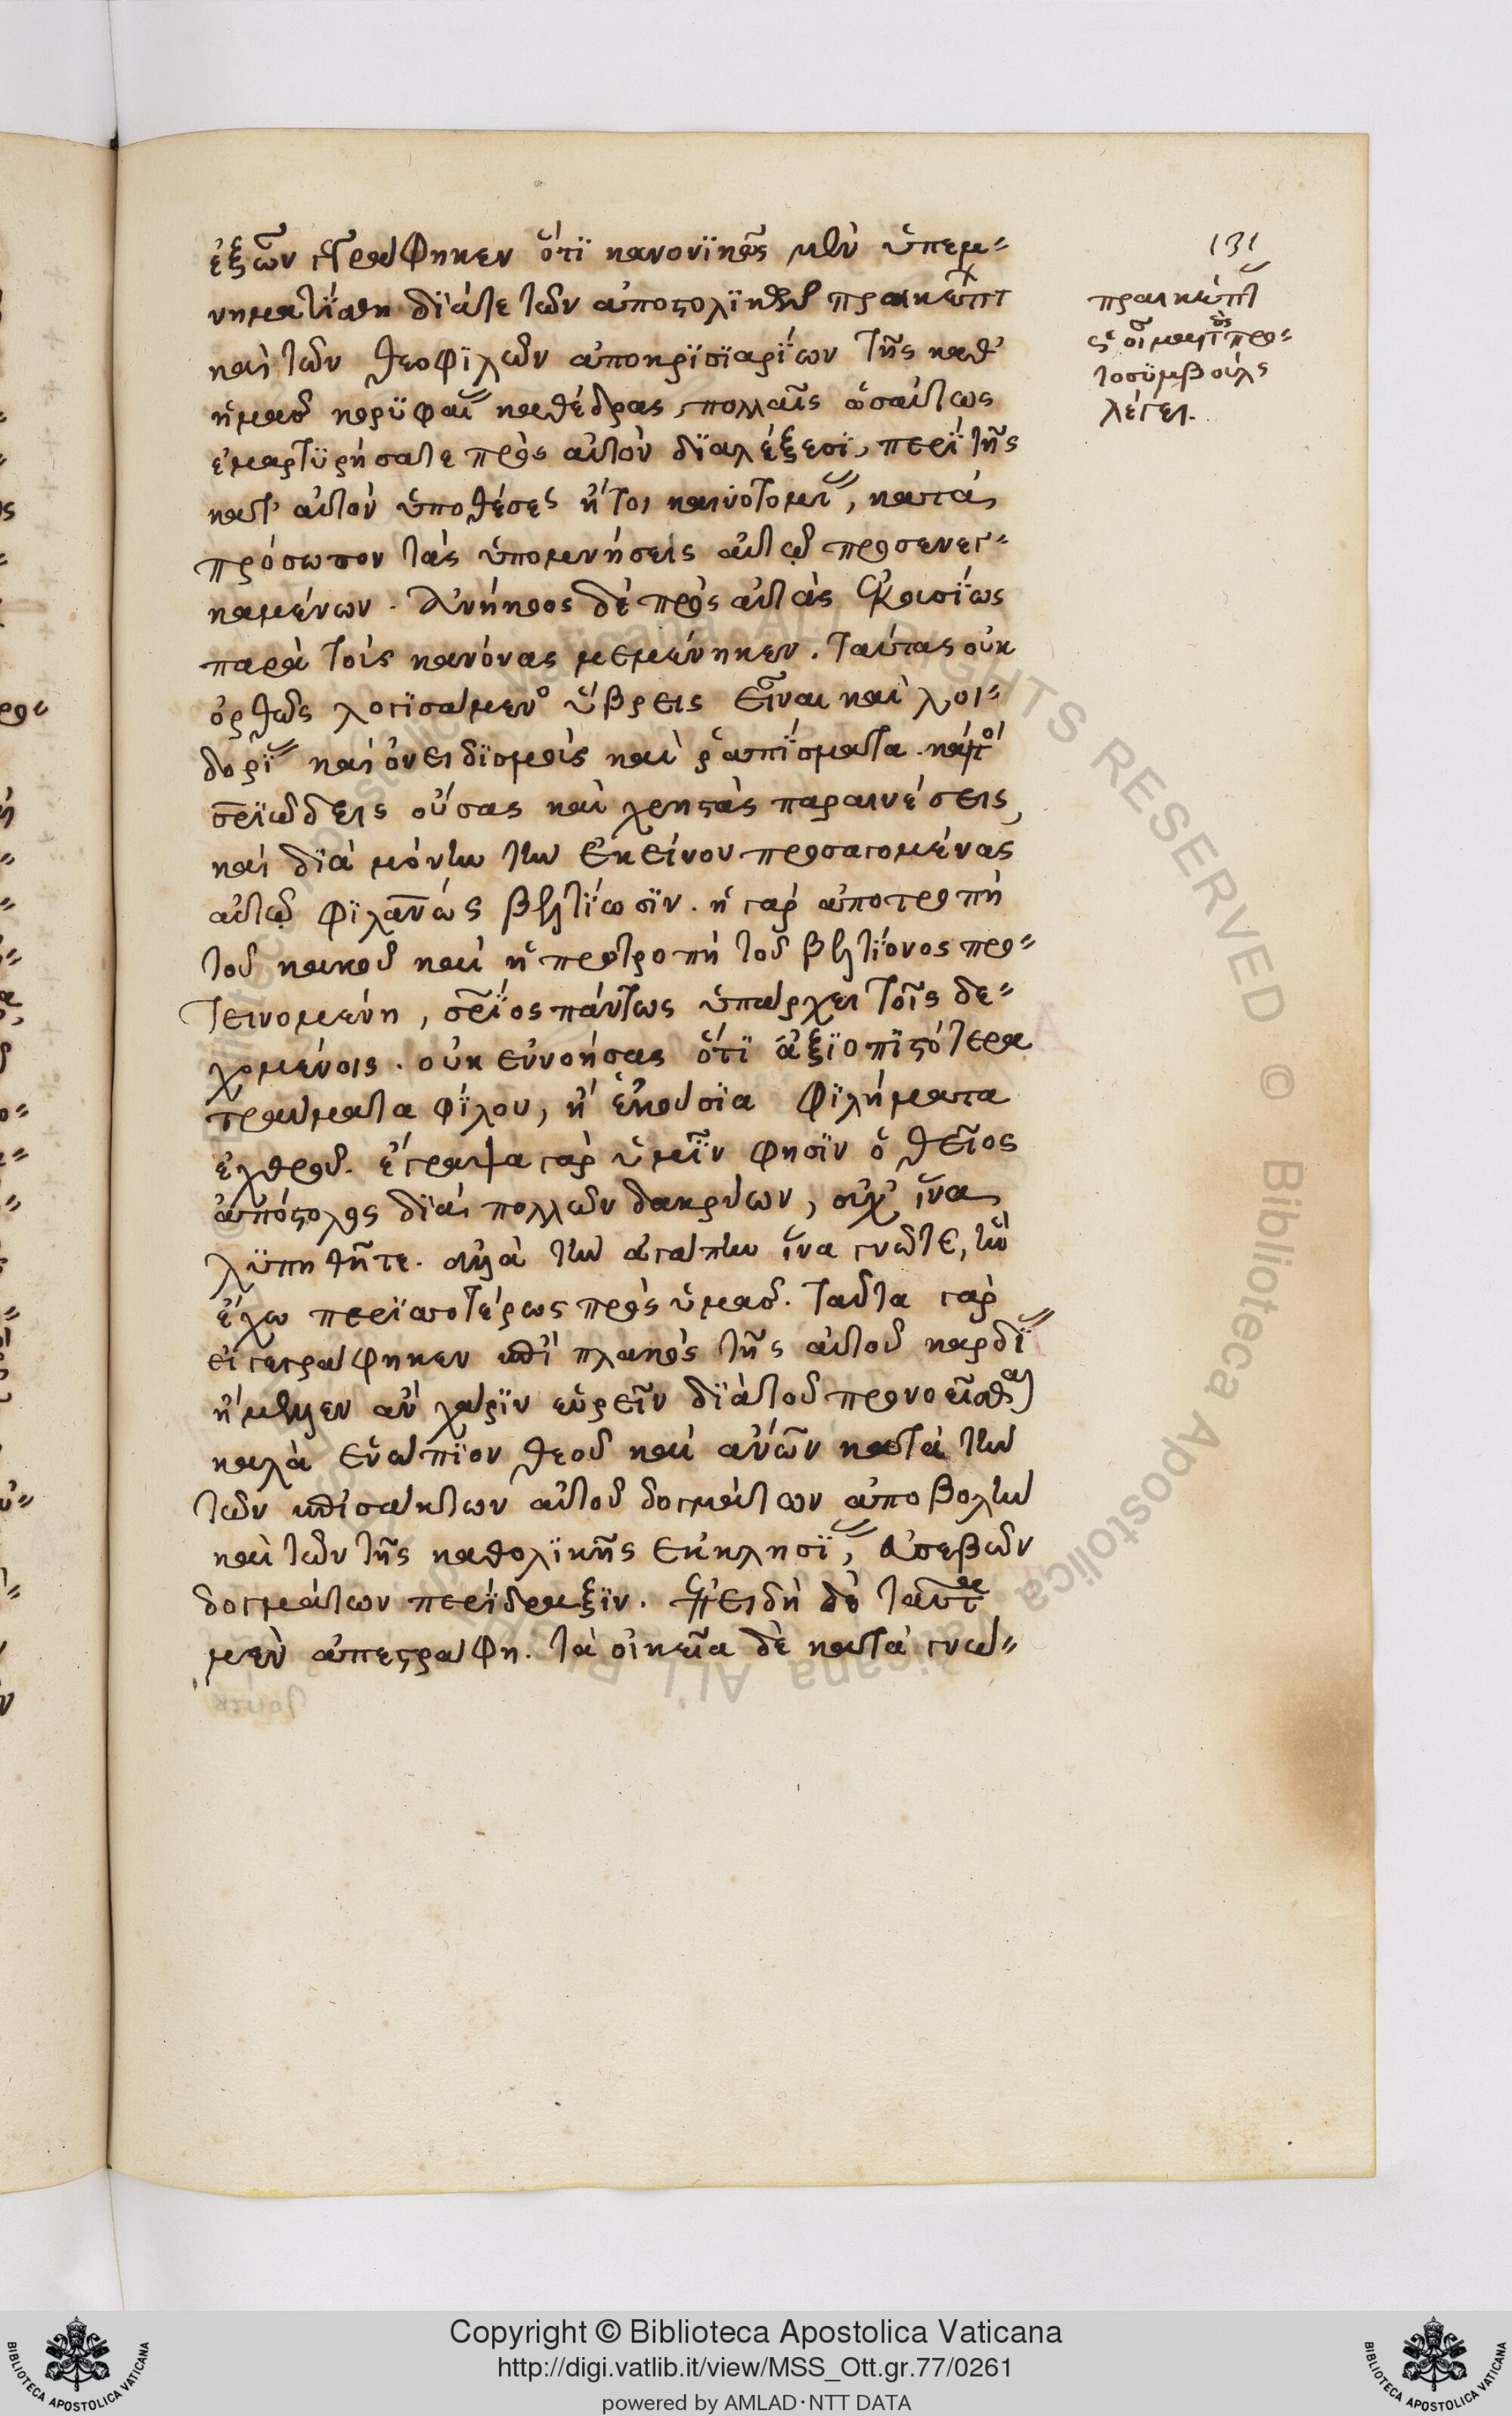 ἐξ ὧν γέγραφηκεν ὅτι κανονικῶς μὲν ὑπεμ-
νηματίσθη διά τε τῶν ἀποστολικῶν πραικέπτ
καὶ τῶν θεοφιλῶν ἀποκρισιαρίων τῆς καθ'
ἡμᾶς κορυφαί καθέδρας, πολλαῖς ὡσαύτως
ἐμαρτυρήσατε πρὸς αὐτὸν διαλέξεσι, περὶ τῆς
κατ' αὐτὸν ὑποθέσεως ἤτοι καινοτομί, κατὰ
πρόσωπον τὰς ὑπομνήσεις αὐτῷ προσενεγ-
καμένων. ἀνήκοος δὲ πρὸς αὐτὰς ἑκουσίως
παρὰ τοὺς κανόνας μεμένηκεν. ταύτας οὐκ
ὀρθῶς λογισάμενο ὕβρεις εἶναι καὶ λοι-
δορί καὶ ὀνειδισμοὺς καὶ ῥαπίσματα.
σριώδεις οὔσας καὶ χρηστὰς παραινέσεις,
καὶ διὰ μόνην τὴν ἐκείνου προσαγομένας
αὐτῷ φιλανως βελτίωσιν. ἡ γὰρ ἀποτροπὴ
τοῦ κακοῦ καὶ ἡ προτροπὴ τοῦ βελτίονος προ-
τεινομένη, σριος πάντως ὑπάρχει τοῖς δε-
χομένοις. οὐκ εὐνοήσας ὅτι ἀξιοπιστότερα
τραύματα φίλου, ἢ ἑκούσια φιλήματα
ἐχθροῦ. ἔγραψα γὰρ ὑμῖν φησὶν ὁ θεῖος
ἀπόστολος διὰ πολλῶν δακρύων, οὐχ ἵνα
λυπηθῆτε. ἀλλὰ τὴν ἀγάπην ἵνα γνῶτε, ἣν
ἔχω περισσοτέρως πρὸς ὑμᾶς. ταῦτα γὰρ
εἰ γεγράφηκεν ἐπὶ πλακὸς τῆς αὐτοῦ καρδί
ἤμελλεν ἂν χάριν εὑρεῖν διὰ τοῦ προνοεῖσθαι
καλὰ ἐνώπιον θεοῦ καὶ ἀνων κατὰ τὴν
τῶν ἐπισάκτων αὐτοῦ δογμάτων ἀποβολὴν
καὶ τῶν τῆς καθολικῆς ἐκκλησί, ἀσεβῶν
δογμάτων περίδραξιν. ἐπειδὴ δὲ ταῦτα
μὲν ἀπεστράφη. τὰ οἰκεῖα δὲ κατὰ γνώ-
131
πραικέπτ
οἶμαι τοὺς πρω-
τοσυμβούλς
λέγει.
Copyright © Biblioteca Apostolica Vaticana
http://digi.vatlib.it/view/MSS_Ott.gr.77/0261
powered by AMLAD·NTT DATA
BIBLIOTECA APOSTOLICA VATICANA
BIBLIOTECA APOSTOLICA VATICANA